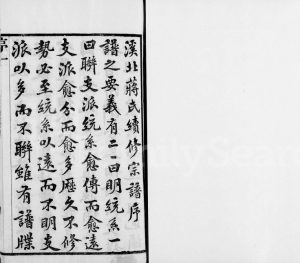 溪北蔣氏續修宗譜序
譜之要義有二一曰明統系一
曰聯支派統系愈傳而愈遠
支派愈分而愈多歷久不修
勢必至統系以遠而不明支
派以多而不聯雖有譜牒
序一